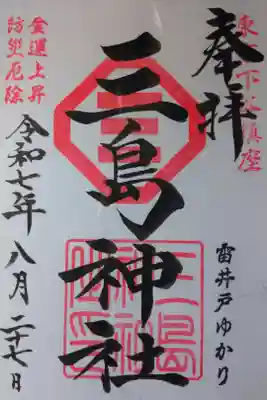 東京下谷鎮座
奉拝
三島神社
雷井戸ゆかり
金運上昇
防災厄除
令和七年八月二十七日